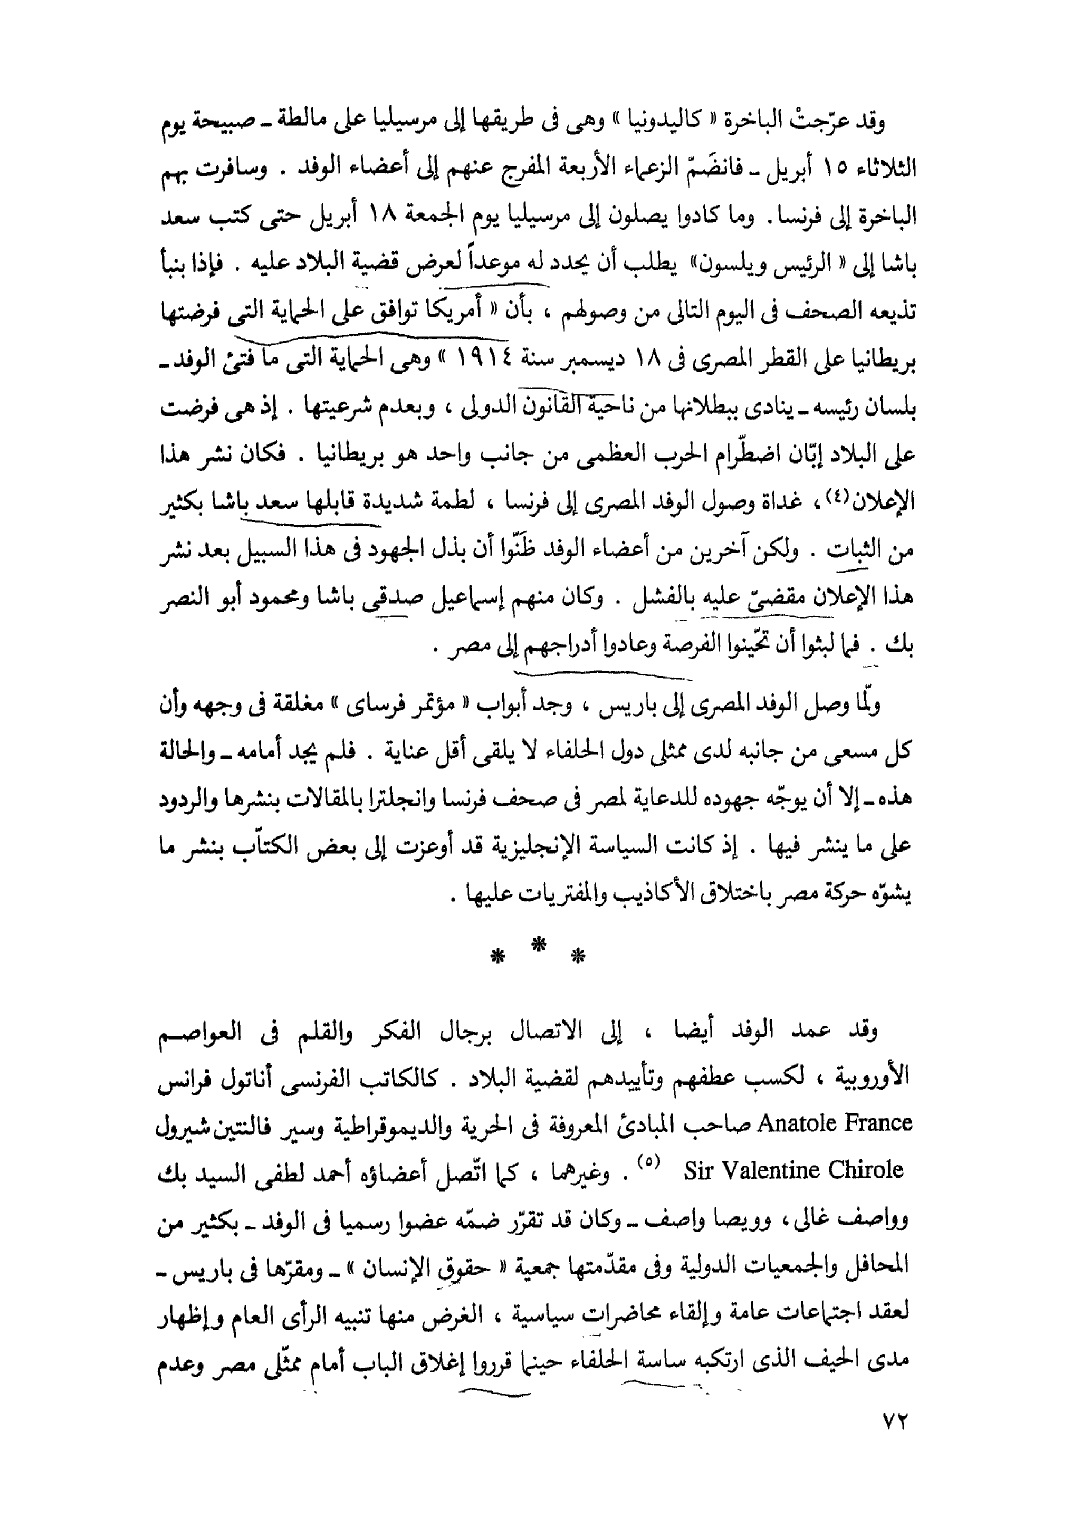 وقد عرّجتْ الباخرة « كاليدونيا » وهى فى طريقها إلى مرسيليا على مالطة ـ صبيحة يوم
الثلاثاء ١٥ أبريل ـ فانضَمّ الزعماء الأربعة المفرج عنهم إلى أعضاء الوفد . وسافرت بهم
الباخرة إلى فرنسا. وما كادوا يصلون إلى مرسيليا يوم الجمعة ١٨ أبريل حتى كتب سعد
باشا إلى « الرئيس ويلسون» يطلب أن يحدد له موعداً لعرض قضية البلاد عليه . فإذا بنبأ
تذيعه الصحف فى اليوم التالى من وصولهم ، بأن « أمريكا توافق على الحماية التى فرضتها
بريطانيا على القطر المصرى فى ١٨ ديسمبر سنة ١٩١٤ » وهى الحماية التى ما فتئ الوفد ـ
بلسان رئيسه ـ ينادى ببطلانها من ناحية القانون الدولى ، وبعدم شرعيتها . إذ هى فرضت
على البلاد إبّان اضطّرام الحرب العظمى من جانب واحد هو بريطانيا . فكان نشر هذا
الإعلان(٤)، غداة وصول الوفد المصرى إلى فرنسا ، لطمة شديدة قابلها سعد باشا بكثير
من الثبات . ولكن آخرين من أعضاء الوفد ظَنّوا أن بذل الجهود فى هذا السبيل بعد نشر
هذا الإعلان مقضىّ عليه بالفشل . وكان منهم إسماعيل صدقى باشا ومحمود أبو النصر
بك . فما لبثوا أن تحيّنوا الفرصة وعادوا أدراجهم إلى مصر .
ولمّا وصل الوفد المصرى إلى باريس ، وجد أبواب « مؤتمر فرساى » مغلقة فى وجهه وأن
كل مسعى من جانبه لدى ممثلى دول الحلفاء لا يلقى أقل عناية . فلم يجد أمامه ـ والحالة
هذه ـ إلا أن يوجّه جهوده للدعاية لمصر فى صحف فرنسا وانجلترا بالمقالات بنشرها والردود
على ما ينشر فيها . إذ كانت السياسة الإنجليزية قد أوعزت إلى بعض الكتاّب بنشر ما
يشوّه حركة مصر باختلاق الأكاذيب والمفتريات عليها .
* * *
وقد عمد الوفد أيضا ، إلى الاتصال برجال الفكر والقلم فى العواصم
الأوروبية ، لكسب عطفهم وتأييدهم لقضية البلاد . كالكاتب الفرنسى أناتول فرانس
Anatole France صاحب المبادئ المعروفة فى الحرية والديموقراطية وسير فالنتين شيرول
Sir Valentine Chirole (٥) . وغيرهما ، كما اتّصل أعضاؤه أحمد لطفى السيد بك
وواصف غالى، وويصا واصف ـ وكان قد تقرّر ضمّه عضوا رسميا فى الوفد ـ بكثير من
المحافل والجمعيات الدولية وفى مقدّمتها جمعية « حقوق الإنسان » ـ ومقرّها فى باريس ـ
لعقد اجتماعات عامة وإلقاء محاضرات سياسية ، الغرض منها تنبيه الرأى العام وإظهار
مدى الحيف الذى ارتكبه ساسة الحلفاء حينما قرروا إغلاق الباب أمام ممثّلى مصر وعدم
٧٢